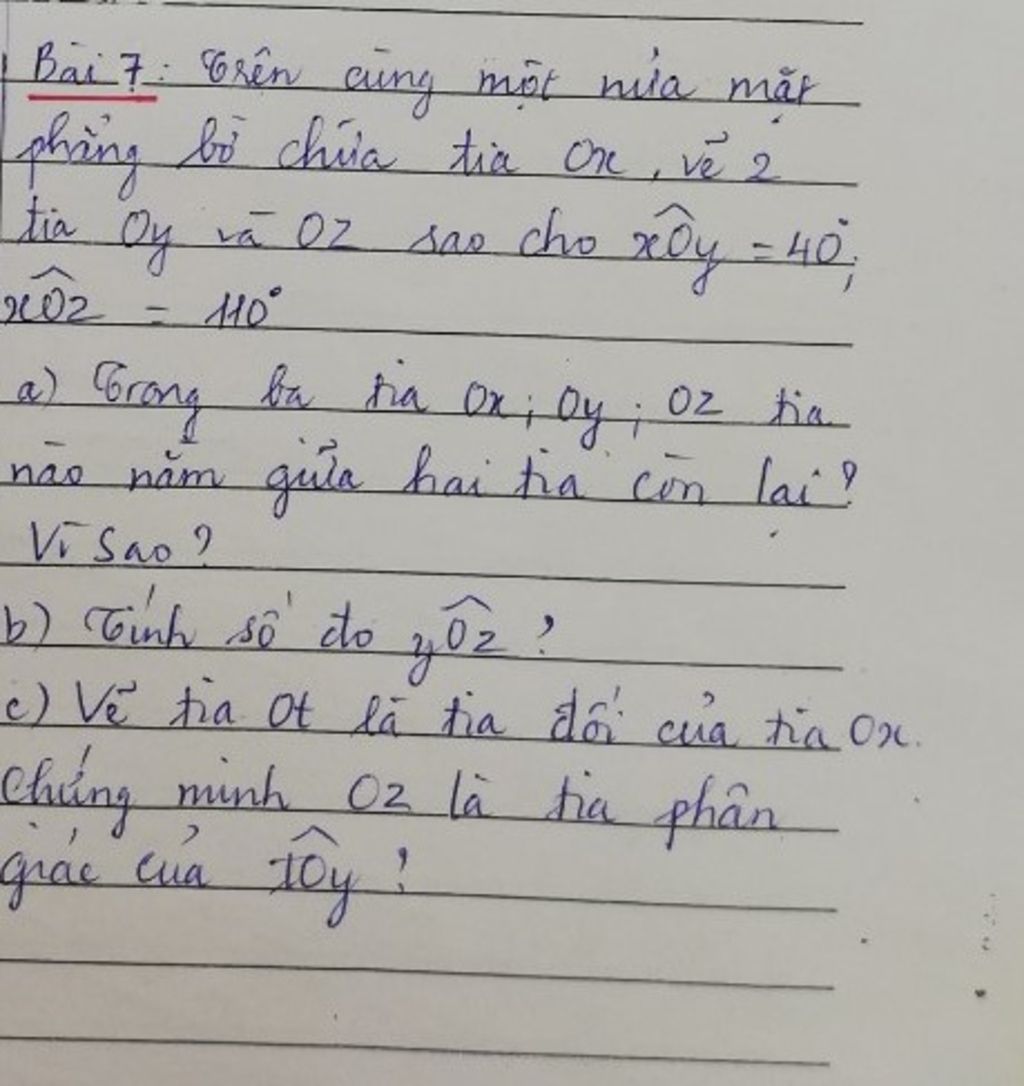 Bài 7: Trên cùng một nửa mặt
phẳng bờ chứa tia Ox, vẽ 2
tia Oy và Oz sao cho xÔy = 40°;
xÔz = 110°
a) Trong ba tia Ox; Oy; Oz tia
nào nằm giữa hai tia còn lại?
Vì sao?
b) Tính số đo yÔz?
c) Vẽ tia Ot là tia đối của tia Ox.
Chứng minh Oz là tia phân
giác của tÔy?